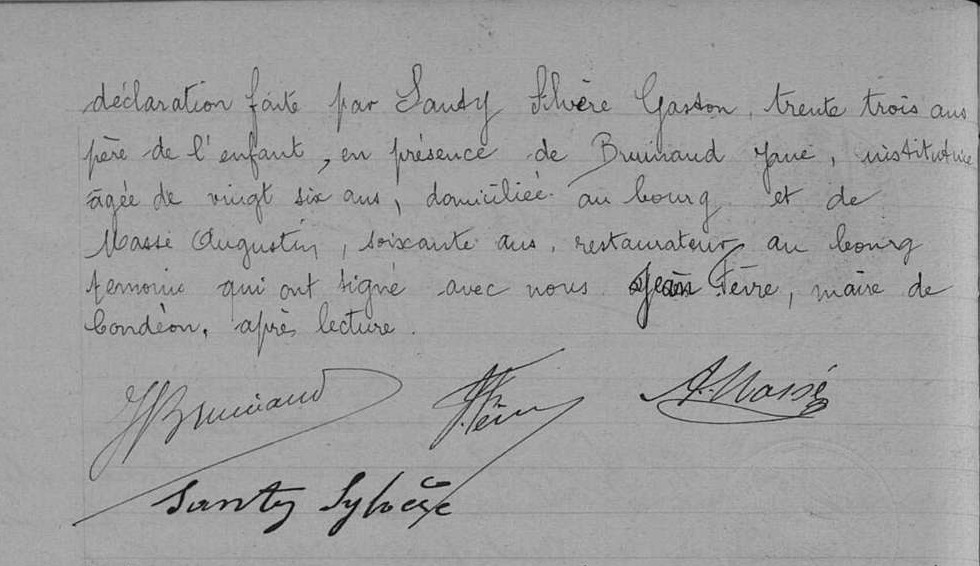 déclaration faite par Santy Silvère Gaston, trente trois ans
père de l'enfant, en présence de Bruinaud Jane, institutrice
âgée de vingt six ans, domiciliée au bourg et de
Massé Augustin, soixante ans, restaurateur au bourg
temoins qui ont signé avec nous Jean Fèvre, maire de
Condéon, après lecture.
JBruinaud
A. Massé
Santy Sylvère